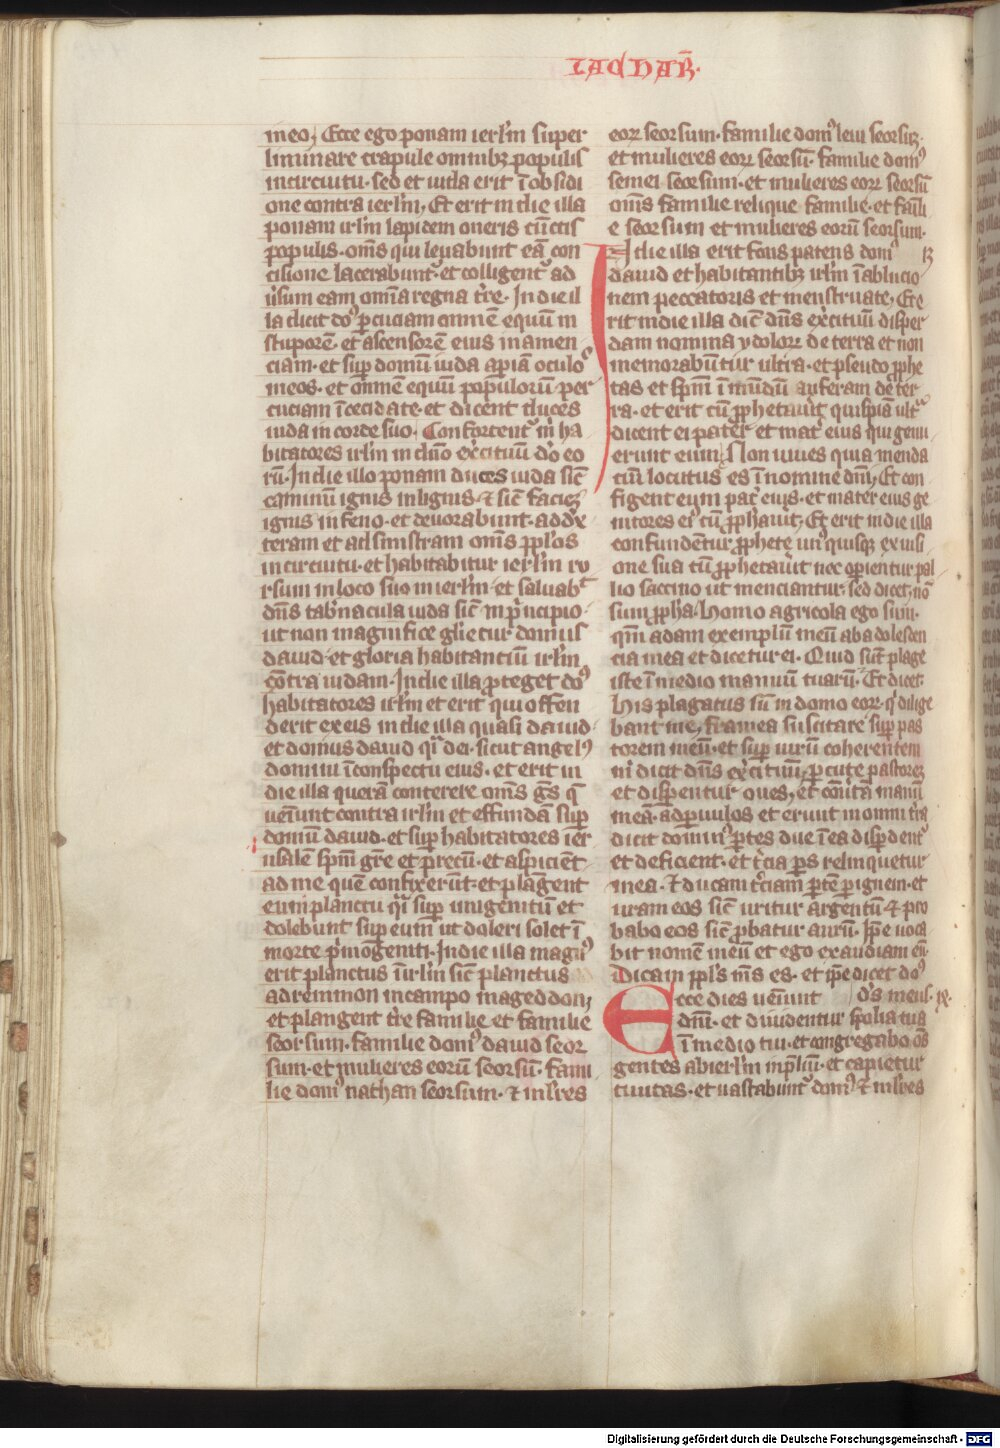 ZACHAR̄.
in eo. Ecce ego ponam ierl̄m super
liminare crapule omnibꝫ populis
in circuitu· sed et iuda erit ī obsidi
one contra ierl̄m. Et erit in die illa
ponam irl̄m lapidem oneris cūctis
populis· om̄s qui leuabunt eā con
cisione lacerabunt᷑ et colligent᷑ ad
ūsum eam om̄ia regna tr̄e· In die il
la dicit do᷒ ꝑcuciam omnē equū in
stuporē· et ascensorē eius in amen
ciam· et suꝑ domū iuda apiā oculo᷒
meos· et omnē equū populorū per
cuciam ī cecidate· et dicent duces
iuda in corde suo· Confortent᷑ m̄ ha
bitatores irl̄m in dn̄o exc̄ituū do̅ eo
rū· In die illo ponam duces iuda sic̄
caminū ignis in lignis· ⁊ sic̄ faciēꝫ
ignis in feno· et deuorabunt· ad dex
teram et ad sinistram om̄s ppl̄os
in circuitu· et habitabitur ierl̄m ru
rsum in loco suo in ierl̄m· et saluab᷑t
dn̄s tab̄nacula iuda sic̄ in p̄ncipio·
ut non magnifice gl̄ietur domus
dauid· et gloria habitanciū irl̄m
cōtra iudam· In die illa ꝓteget do᷒
habitatores irl̄m et erit qui offen
derit ex eis in die illa quasi dauid·
et domus dauid q̄i dei· sicut angel᷒
domini ī conspectu eius· et erit in
die illa querā conterere om̄s gn̄s q̄
ueniunt contra irl̄m et effundā suꝑ
domū dauid· et suꝑ habitatores ier
usalē spm̄ gr̄e et precū· et aspiciēt
ad me quē confixerūt· et plāgent
eum planctu q̄i suꝑ unigenitū et
dolebunt suꝑ eum ut doleri solet ī
morte p̄mogeniti· In die illa magn᷒
erit planctus ī irl̄m sic̄ planctus
adremmon in campo mageddon;
et plangent tr̄e familie et familie
seorsum· familie dom᷒ dauid seor
sum· et mulieres eorū seorsū· fami
lie dom᷒ nathan seorsum· ⁊ ml̄res
eorꝝ seorsum· familie dom᷒ leui seorsū·
et mulieres eorꝝ seorsū· familie dom᷒
semei seorsum· et mulieres eorꝝ seorsū
om̄s familie relique familie· et fāili
e seorsum et mulieres eorū seorsum·
I die illa erit fons patens dom᷒
dauid et habitantibꝫ irl̄m ī ablucio
nem peccatoris et menstruate. Et e
rit in die illa dic̄ dn̄s exc̄ituū disper
dam nomina ydolorꝝ de terra et non
memorabūtur ultra· et pseudo ꝓphe
tas et spm̄ ī mūdū auferam de ter
ra· et erit cū ꝓphetauit quispiā ult᷑
dicent ei pater et mat᷑ eius qui genu
erunt eum. Non uiues quia menda
ciū locutus es ī nomine dn̄i. Et con
figent eum pat᷑ eius· et mater eius ge
nitores ei᷒ cū ꝓphauit. Et erit in die illa
confundentur ꝓphete un᷒quisqꝫ ex uisi
one sua cū ꝓphetauit nec oꝑientur pal
lio saccino ut menciantur· sed dicet· nō
sum ꝓpha· Homo agricola ego sum·
qm̄ adam exemplū meū ab adolescen
cia mea et dicetur ei· Quid sūt plage
iste ī medio manuū tuarū· Et dicet·
his plagatus sū in domo eorꝝ· q̄ dilige
bant me. Framea suscitare suꝑ pas
torem meū· et suꝑ uirū coherentem
m̄ dicit dn̄s exc̄ituū· ꝑcute pastorē
et dispentur oues. et cōūtā manū
meā· ad ꝑuulos et erunt in omni t᷑ra
dicit domin᷒ ꝑtes due ī ea disꝑdent᷑
et deficient· et t᷑cia ꝑs relinquetur
in ea· ⁊ ducam t᷑ciam ꝑtē ꝑ ignem· et
uram eos sic̄ uritur argentū ⁊ pro
babo eos sic̄ ꝓbatur aurū· Ip̄e uoca
bit nomē meū et ego exaudiam eū·
Dicam ppl̄s m̄s es· et ip̄e dicet do᷒
Ecce dies ueniunt d̄s meus·
dn̄i· et diuidentur spolia tua
ī medio tui· et congregabo om̄s
gentes ab ierl̄m in p̄lium· et capietur
ciuitas· et uastabunt᷑ dom᷒ ⁊ ml̄res
Digitalisierung gefördert durch die Deutsche Forschungsgemeinschaft - DFG